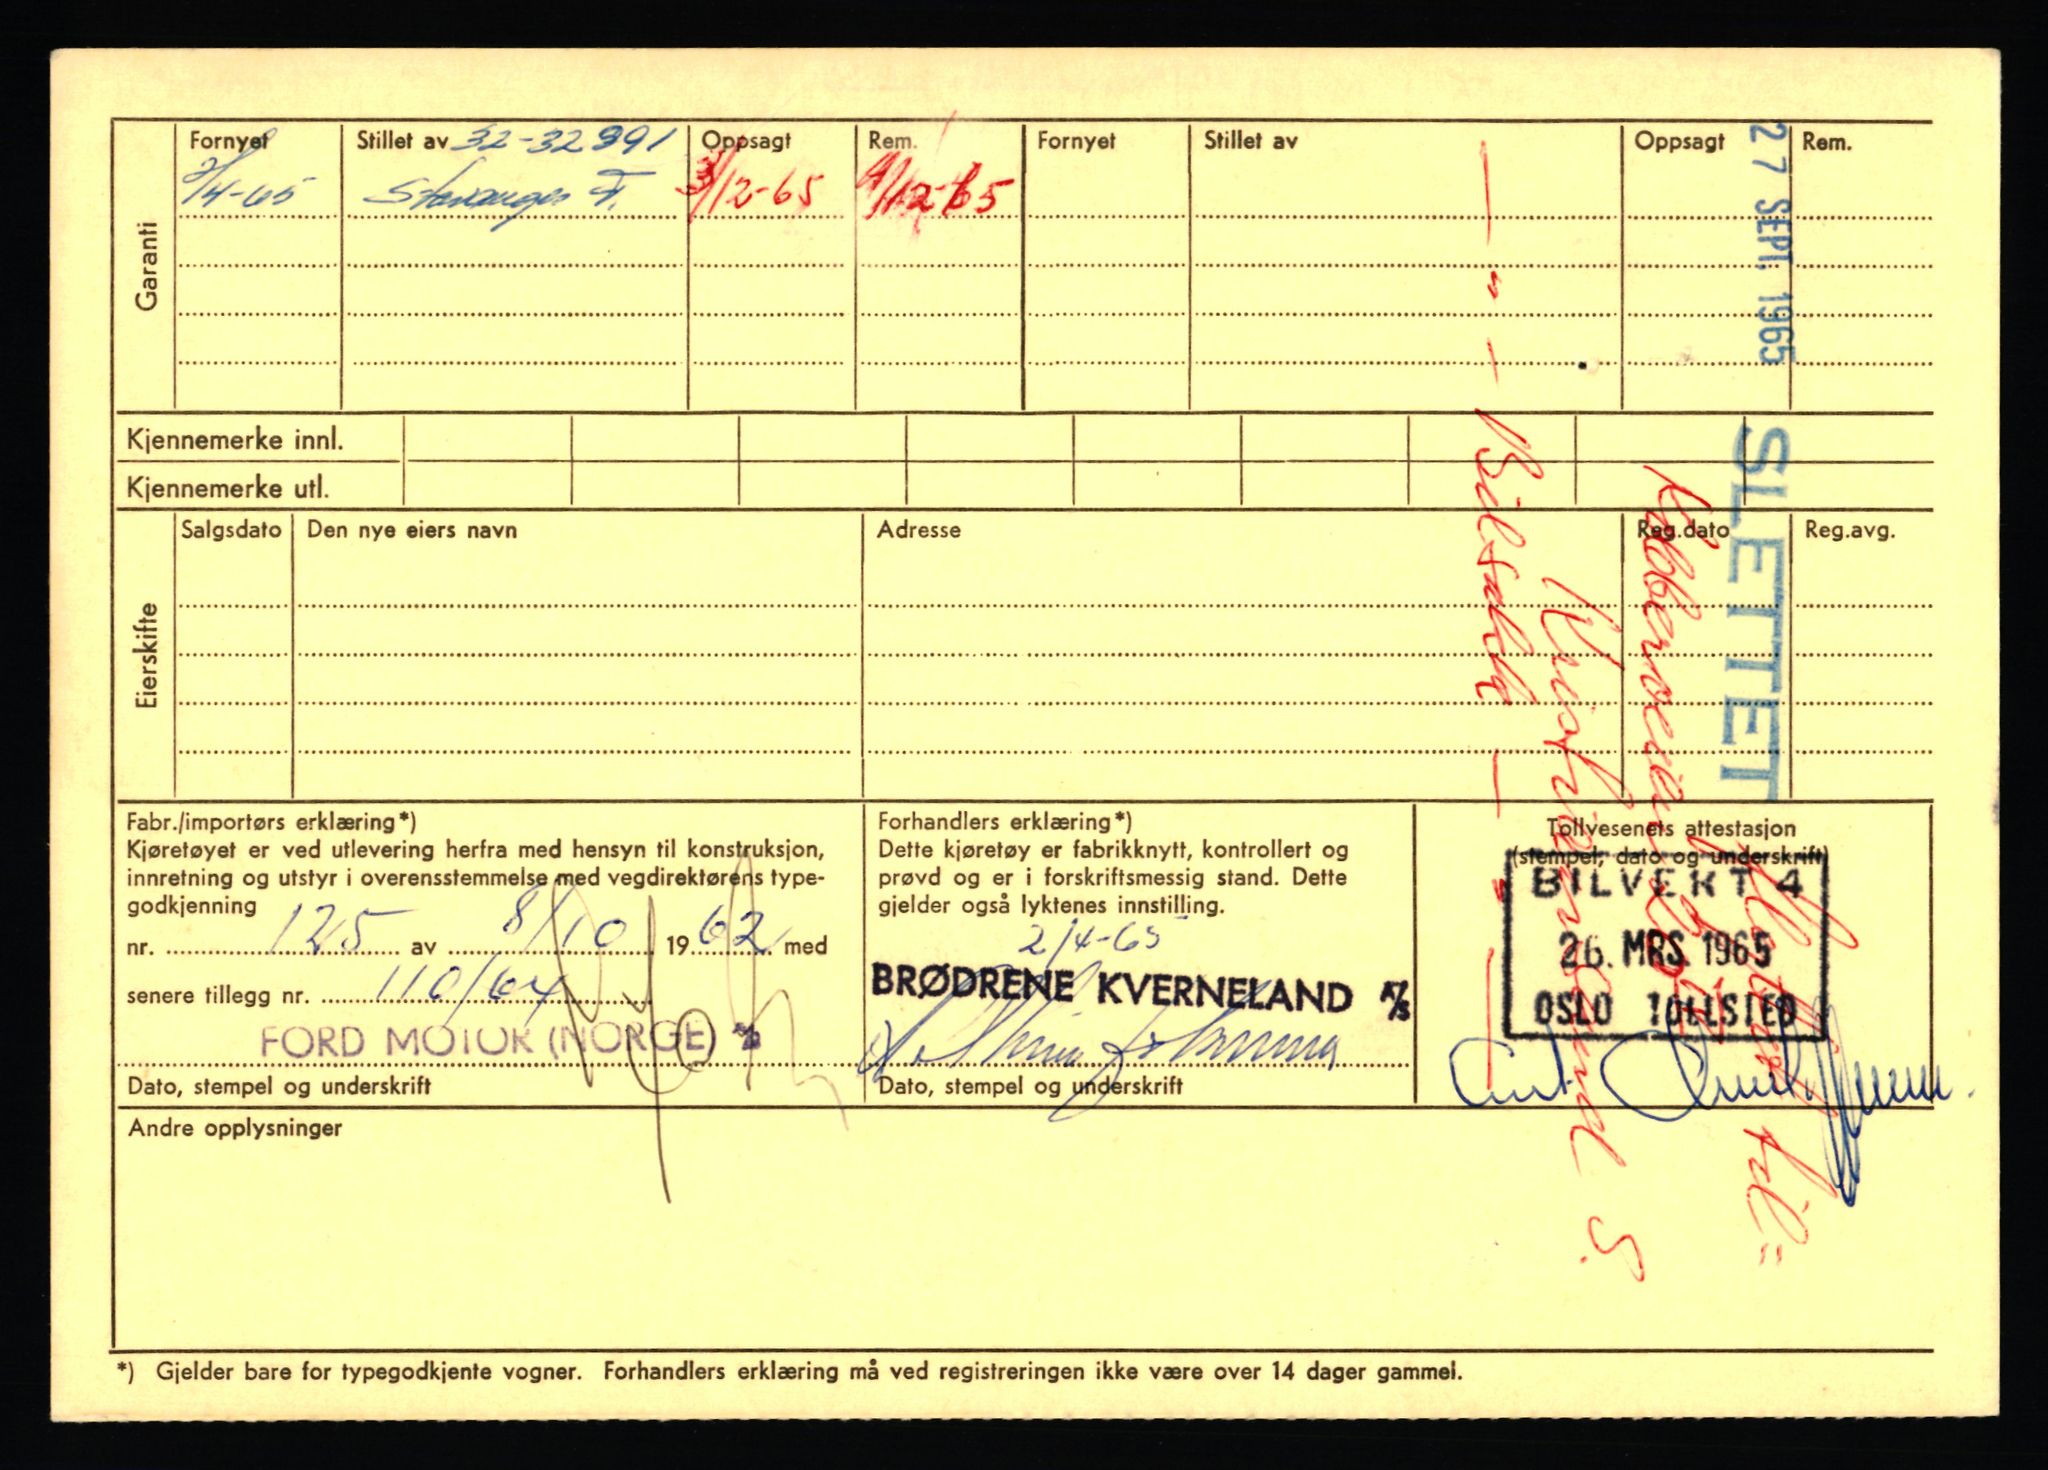 Garanti
Fornyet
Stillet av 32-32991
Oppsagt
Rem.
Fornyet
Stillet av
Oppsagt
Rem.
2/4-65
Stavanger F.
3/12-65
/12-65
Kjennemerke innl.
Kjennemerke utl.
Eierskifte
Salgsdato
Den nye eiers navn
Adresse
Reg.dato
Reg.avg.
27 SEPT. 1965
SLETTET
til =
Kristiansand S.
— " — Bilsakk — " —
Fabr./importørs erklæring*)
Kjøretøyet er ved utlevering herfra med hensyn til konstruksjon,
innretning og utstyr i overensstemmelse med vegdirektørens type-
godkjenning
nr. 125 av 8/10 1962 med
senere tillegg nr. 110/64
FORD MOTOR (NORGE) A/S
Dato, stempel og underskrift
Forhandlers erklæring*)
Dette kjøretøy er fabrikknytt, kontrollert og
prøvd og er i forskriftsmessig stand. Dette
gjelder også lyktenes innstilling.
2/4-65
BRØDRENE KVERNELAND A/S
Dato, stempel og underskrift
Tollvesenets attestasjon
(stempel, dato og underskrift)
BILVERT 4
26. MRS. 1965
OSLO TOLLSTED
Andre opplysninger
*) Gjelder bare for typegodkjente vogner. Forhandlers erklæring må ved registreringen ikke være over 14 dager gammel.